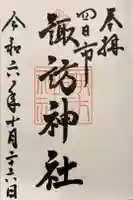 奉拝
四日市
諏訪神社
令和六年十月二十六日